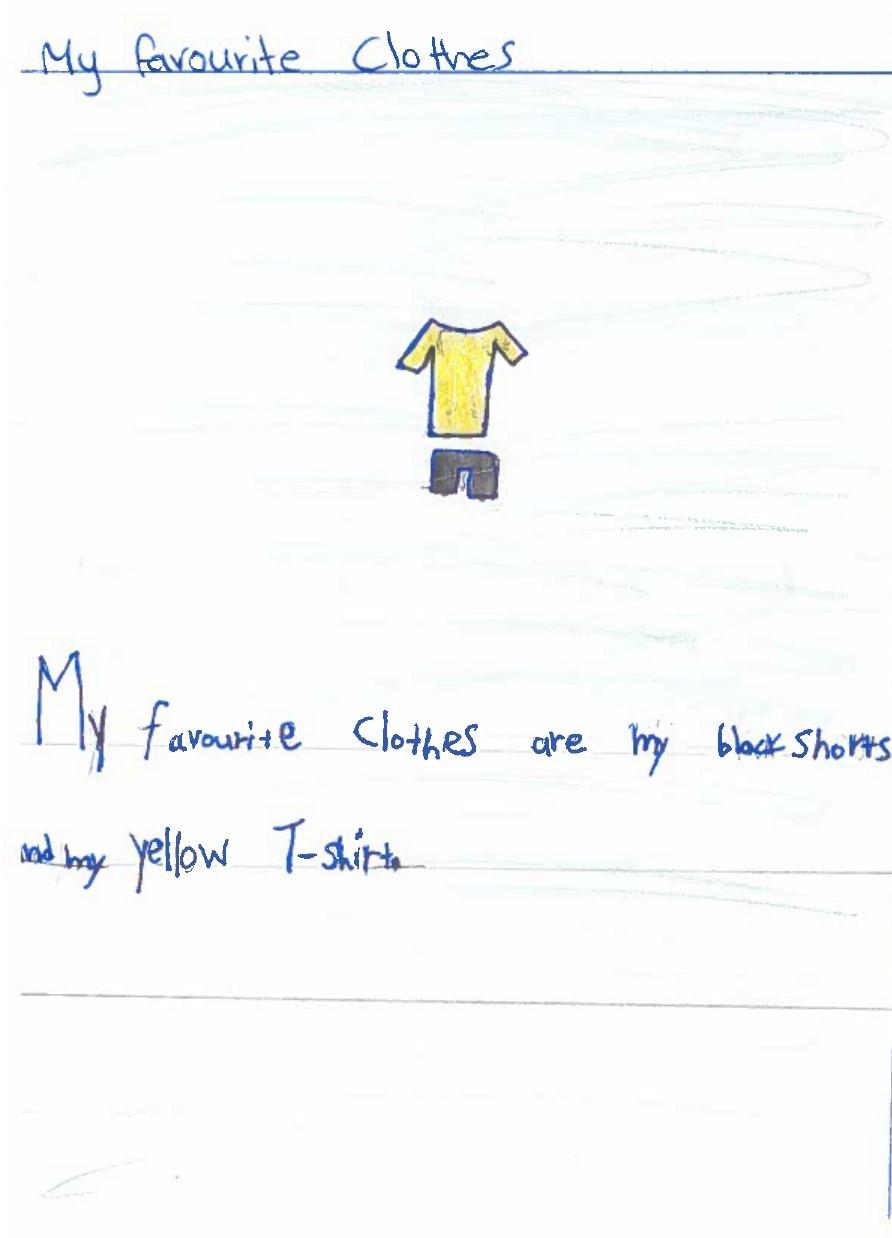 My favourite Clothes
My favourite Clothes are my black shorts
and my yellow T-shirt.